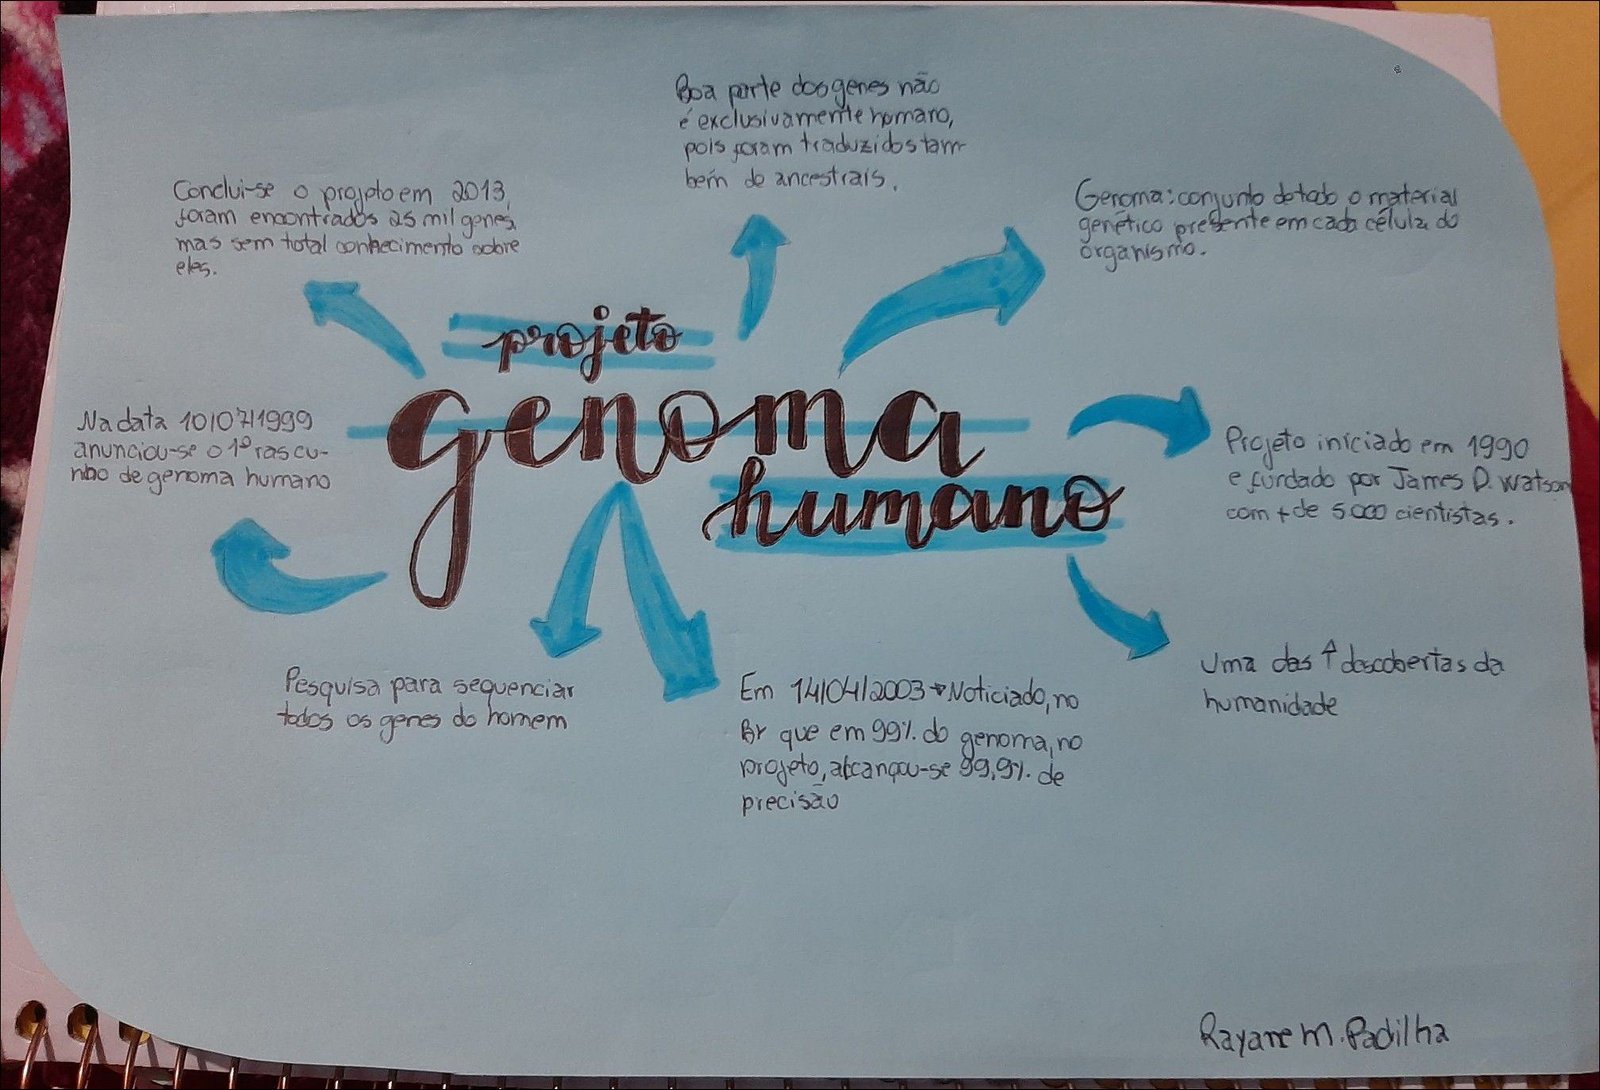 Boa parte dos genes não
é exclusivamente humano,
pois foram traduzidos tam-
bém de ancestrais.
Conclui-se o projeto em 2013,
foram encontrados 25 mil genes,
mas sem total conhecimento sobre
eles.
Genoma: conjunto de todo o material
genético presente em cada célula do
organismo.
projeto
genoma
humano
Na data 10/07/1999
anunciou-se o 1º rascu-
nho de genoma humano
Projeto iniciado em 1990
e fundado por James D. Watson
com + de 5000 cientistas.
Pesquisa para sequenciar
todos os genes do homem
Em 14/04/2003 → Noticiado, no
Br que em 99% do genoma, no
projeto, alcançou-se 99,9% de
precisão
Uma das ↑ descobertas da
humanidade
Rayane M. Padilha